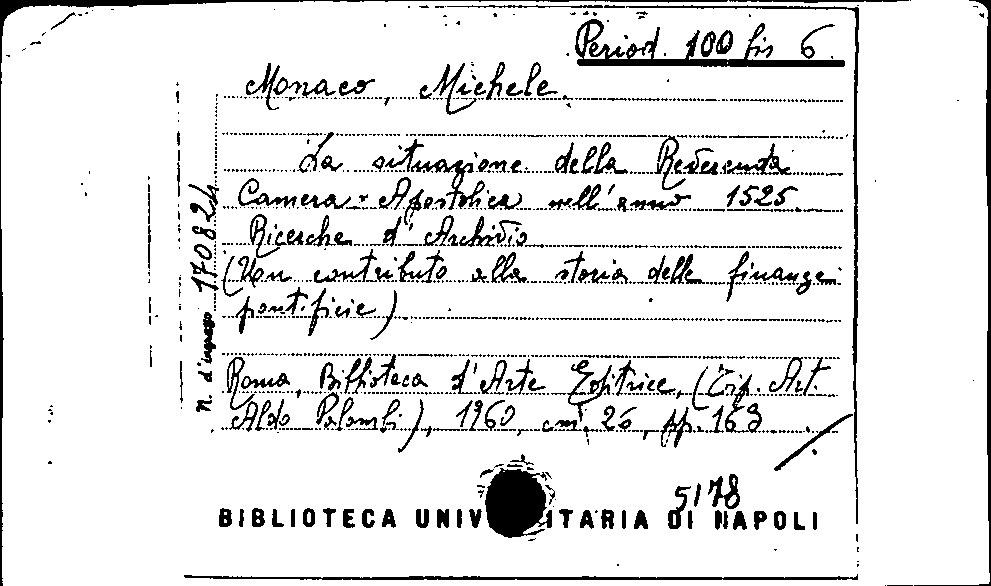 Period. 100 bis 6.
Monaco, Michele.
La situazione della Reverenda
Camera Apostolica nell'anno 1525.
Ricerche d'Archivio
(Un contributo alla storia delle finanze
pontificie).
Roma, Biblioteca d'Arte Editrice, (Tip. Art.
Aldo Palombi), 1960, cm. 26, pp. 163.
N. d'ingresso 170824
5178
BIBLIOTECA UNIV ITARIA DI NAPOLI